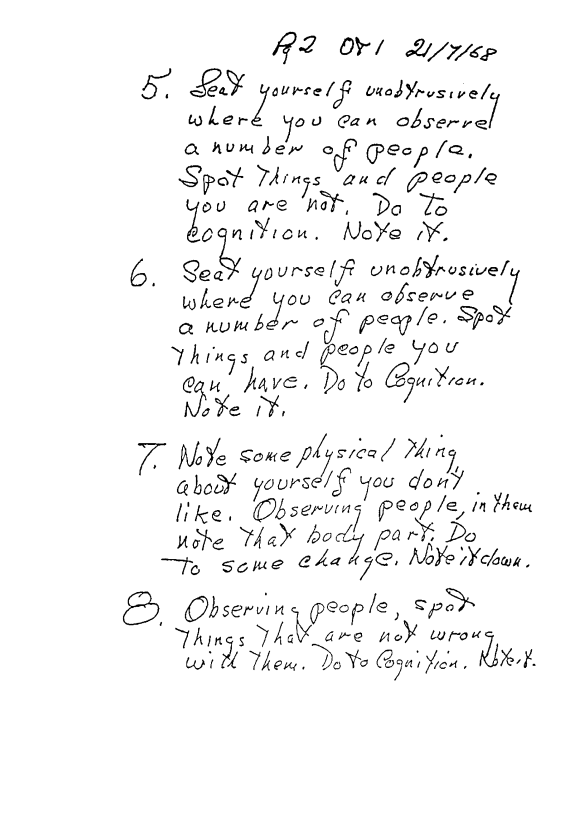 Pg 2 OT 1 21/7/68
5. Seat yourself unobtrusively
where you can observe
a number of people.
Spot Things and people
you are not. Do To
cognition. Note it.
6. Seat yourself unobtrusively
where you can observe
a number of people. Spot
Things and people you
can have. Do to Cognition.
Note it.
7. Note some physical Thing
about yourself you don't
like. Observing people, in them
note That body part. Do
To some change. Note it down.
8. Observing people, spot
Things That are not wrong
with Them. Do to Cognition. Note it.